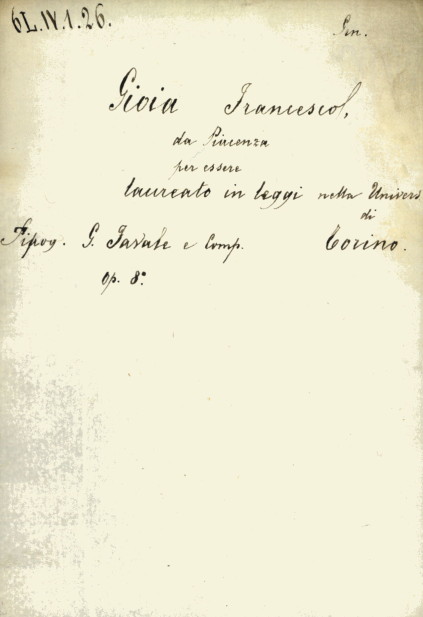 6L.IV.1.26.
Gen.
Gioia Francesco,
da Piacenza
per essere
laureato in leggi nella Univers
di
Torino.
Tipog. G. Favale e Comp.
Op. 8°.